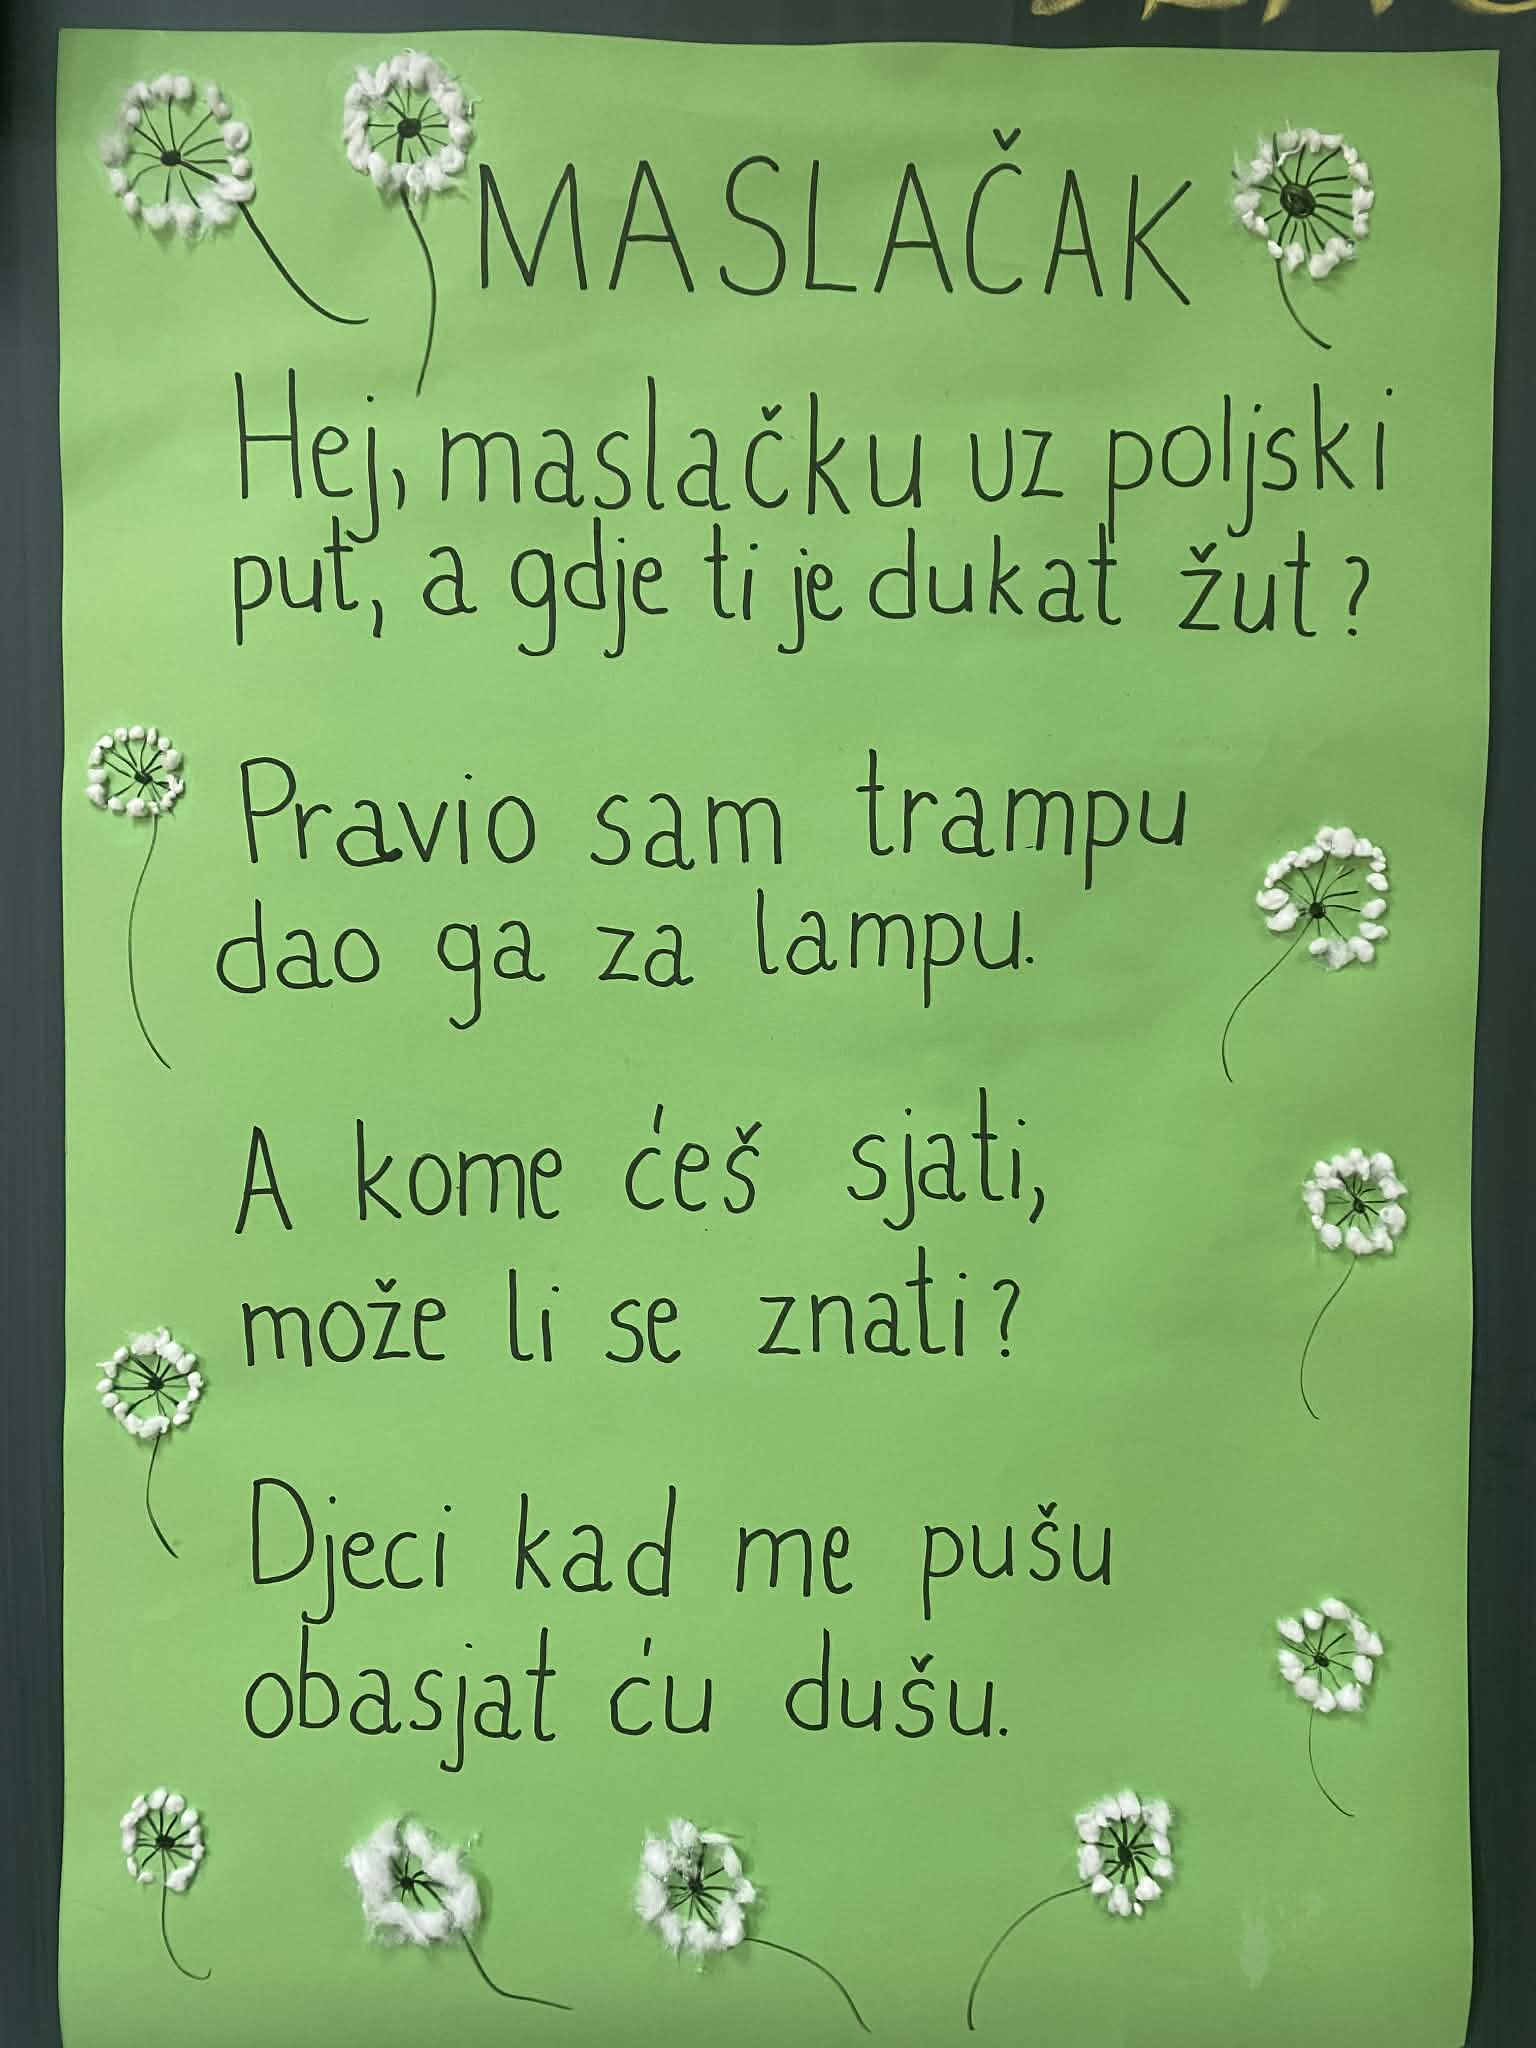 MASLAČAK
Hej, maslačku uz poljski
put, a gdje ti je dukat žut?
Pravio sam trampu
dao ga za lampu.
A kome ćeš sjati,
može li se znati?
Djeci kad me pušu
obasjat ću dušu.